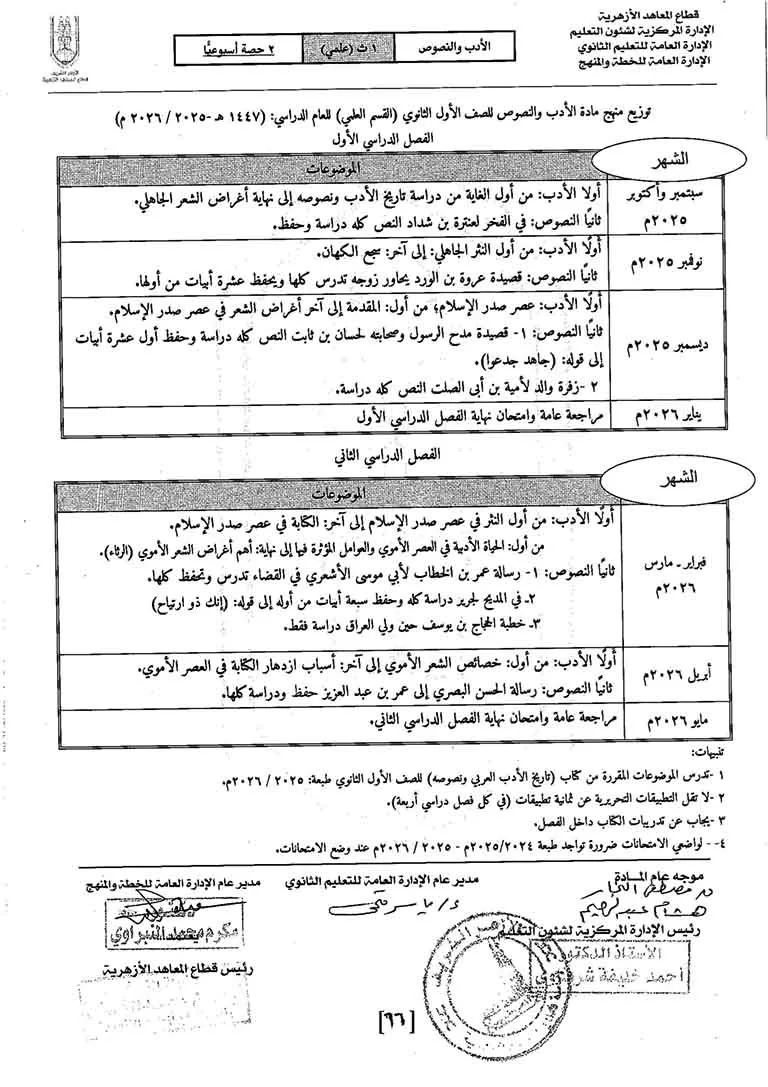 قطاع المعاهد الأزهرية
الإدارة المركزية لشئون التعليم
الإدارة العامة للتعليم الثانوي
الإدارة العامة للخطة والمنهج
الأدب والنصوص
١ ث (علمي)
٢ حصة أسبوعيًا
الأزهر الشريف
قطاع المعاهد الأزهرية
توزيع منهج مادة الأدب والنصوص للصف الأول الثانوي (القسم العلمي) للعام الدراسي: (١٤٤٧ هـ -٢٠٢٥ / ٢٠٢٦ م)
الفصل الدراسي الأول
الشهر
الموضوعات
سبتمبر وأكتوبر
٢٠٢٥م
أولا الأدب: من أول الغاية من دراسة تاريخ الأدب ونصوصه إلى نهاية أغراض الشعر الجاهلي.
ثانيًا النصوص: في الفخر لعنترة بن شداد النص كله دراسة وحفظ.
نوفمبر ٢٠٢٥م
أولًا الأدب: من أول النثر الجاهلي: إلى آخر: سجع الكهان.
ثانيًا النصوص: قصيدة عروة بن الورد يحاور زوجه تدرس كلها ويحفظ عشرة أبيات من أولها.
ديسمبر ٢٠٢٥م
أولًا الأدب: عصر صدر الإسلام؛ من أول: المقدمة إلى آخر أغراض الشعر في عصر صدر الإسلام.
ثانيًا النصوص: ١- قصيدة مدح الرسول وصحابته لحسان بن ثابت النص كله دراسة وحفظ أول عشرة أبيات
إلى قوله: (جاهد جدعوا).
٢ -زفرة والد لأمية بن أبى الصلت النص كله دراسة.
يناير ٢٠٢٦م
مراجعة عامة وامتحان نهاية الفصل الدراسي الأول
الفصل الدراسي الثاني
الشهر
الموضوعات
فبراير ـ مارس
٢٠٢٦م
أولًا الأدب: من أول النثر في عصر صدر الإسلام إلى آخر: الكتابة في عصر صدر الإسلام.
من أول: الحياة الأدبية في العصر الأموي والعوامل المؤثرة فيها إلى نهاية: أهم أغراض الشعر الأموي (الرثاء).
ثانيًا النصوص: ١- رسالة عمر بن الخطاب لأبي موسى الأشعري في القضاء تدرس وتحفظ كلها.
٢ـ في المديح لجرير دراسة كله وحفظ سبعة أبيات من أوله إلى قوله: (إنك ذو ارتياح)
٣ـ خطبة الحجاج بن يوسف حين ولي العراق دراسة فقط.
أبريل ٢٠٢٦م
أولًا الأدب: من أول: خصائص الشعر الأموي إلى آخر: أسباب ازدهار الكتابة في العصر الأموي.
ثانيًا النصوص: رسالة الحسن البصري إلى عمر بن عبد العزيز حفظ ودراسة كلها.
مايو ٢٠٢٦م
مراجعة عامة وامتحان نهاية الفصل الدراسي الثاني.
تنبيهات:
١ -تدرس الموضوعات المقررة من كتاب (تاريخ الأدب العربي ونصوصه) للصف الأول الثانوي طبعة: ٢٠٢٥ / ٢٠٢٦م.
٢ -لا تقل التطبيقات التحريرية عن ثمانية تطبيقات (في كل فصل دراسي أربعة).
٣ -يجاب عن تدريبات الكتاب داخل الفصل.
٤- -لواضعي الامتحانات ضرورة تواجد طبعة ٢٠٢٥/٢٠٢٤م - ٢٠٢٥ / ٢٠٢٦م عند وضع الامتحانات.
موجه عام المادة
مدير عام الإدارة العامة للتعليم الثانوي
مدير عام الإدارة العامة للخطة والمنهج
مكرم محمد النبراوي
رئيس الإدارة المركزية لشئون التعليم
رئيس قطاع المعاهد الأزهرية
الأستاذ الدكتور
أحمد خليفة
[٩٦]